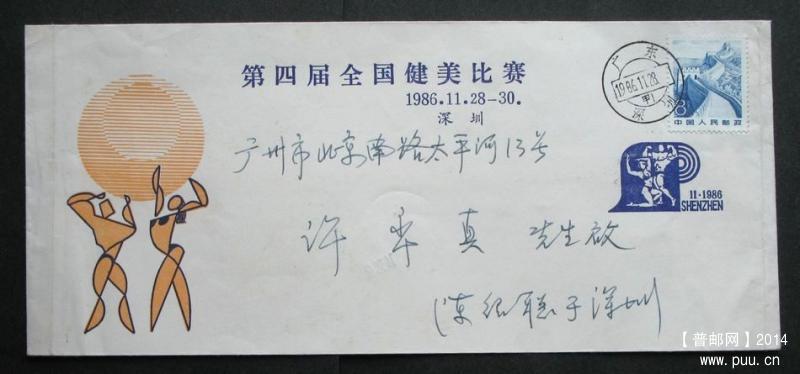 第四届全国健美比赛
1986.11.28-30.
深圳
广东
1986.11.28
甲
深圳
8
中国人民邮政
广州市北京南路太平沙13号
11·1986
SHENZHEN
许 真 先生啟
于深圳
【普邮网】2014
www.puu.cn